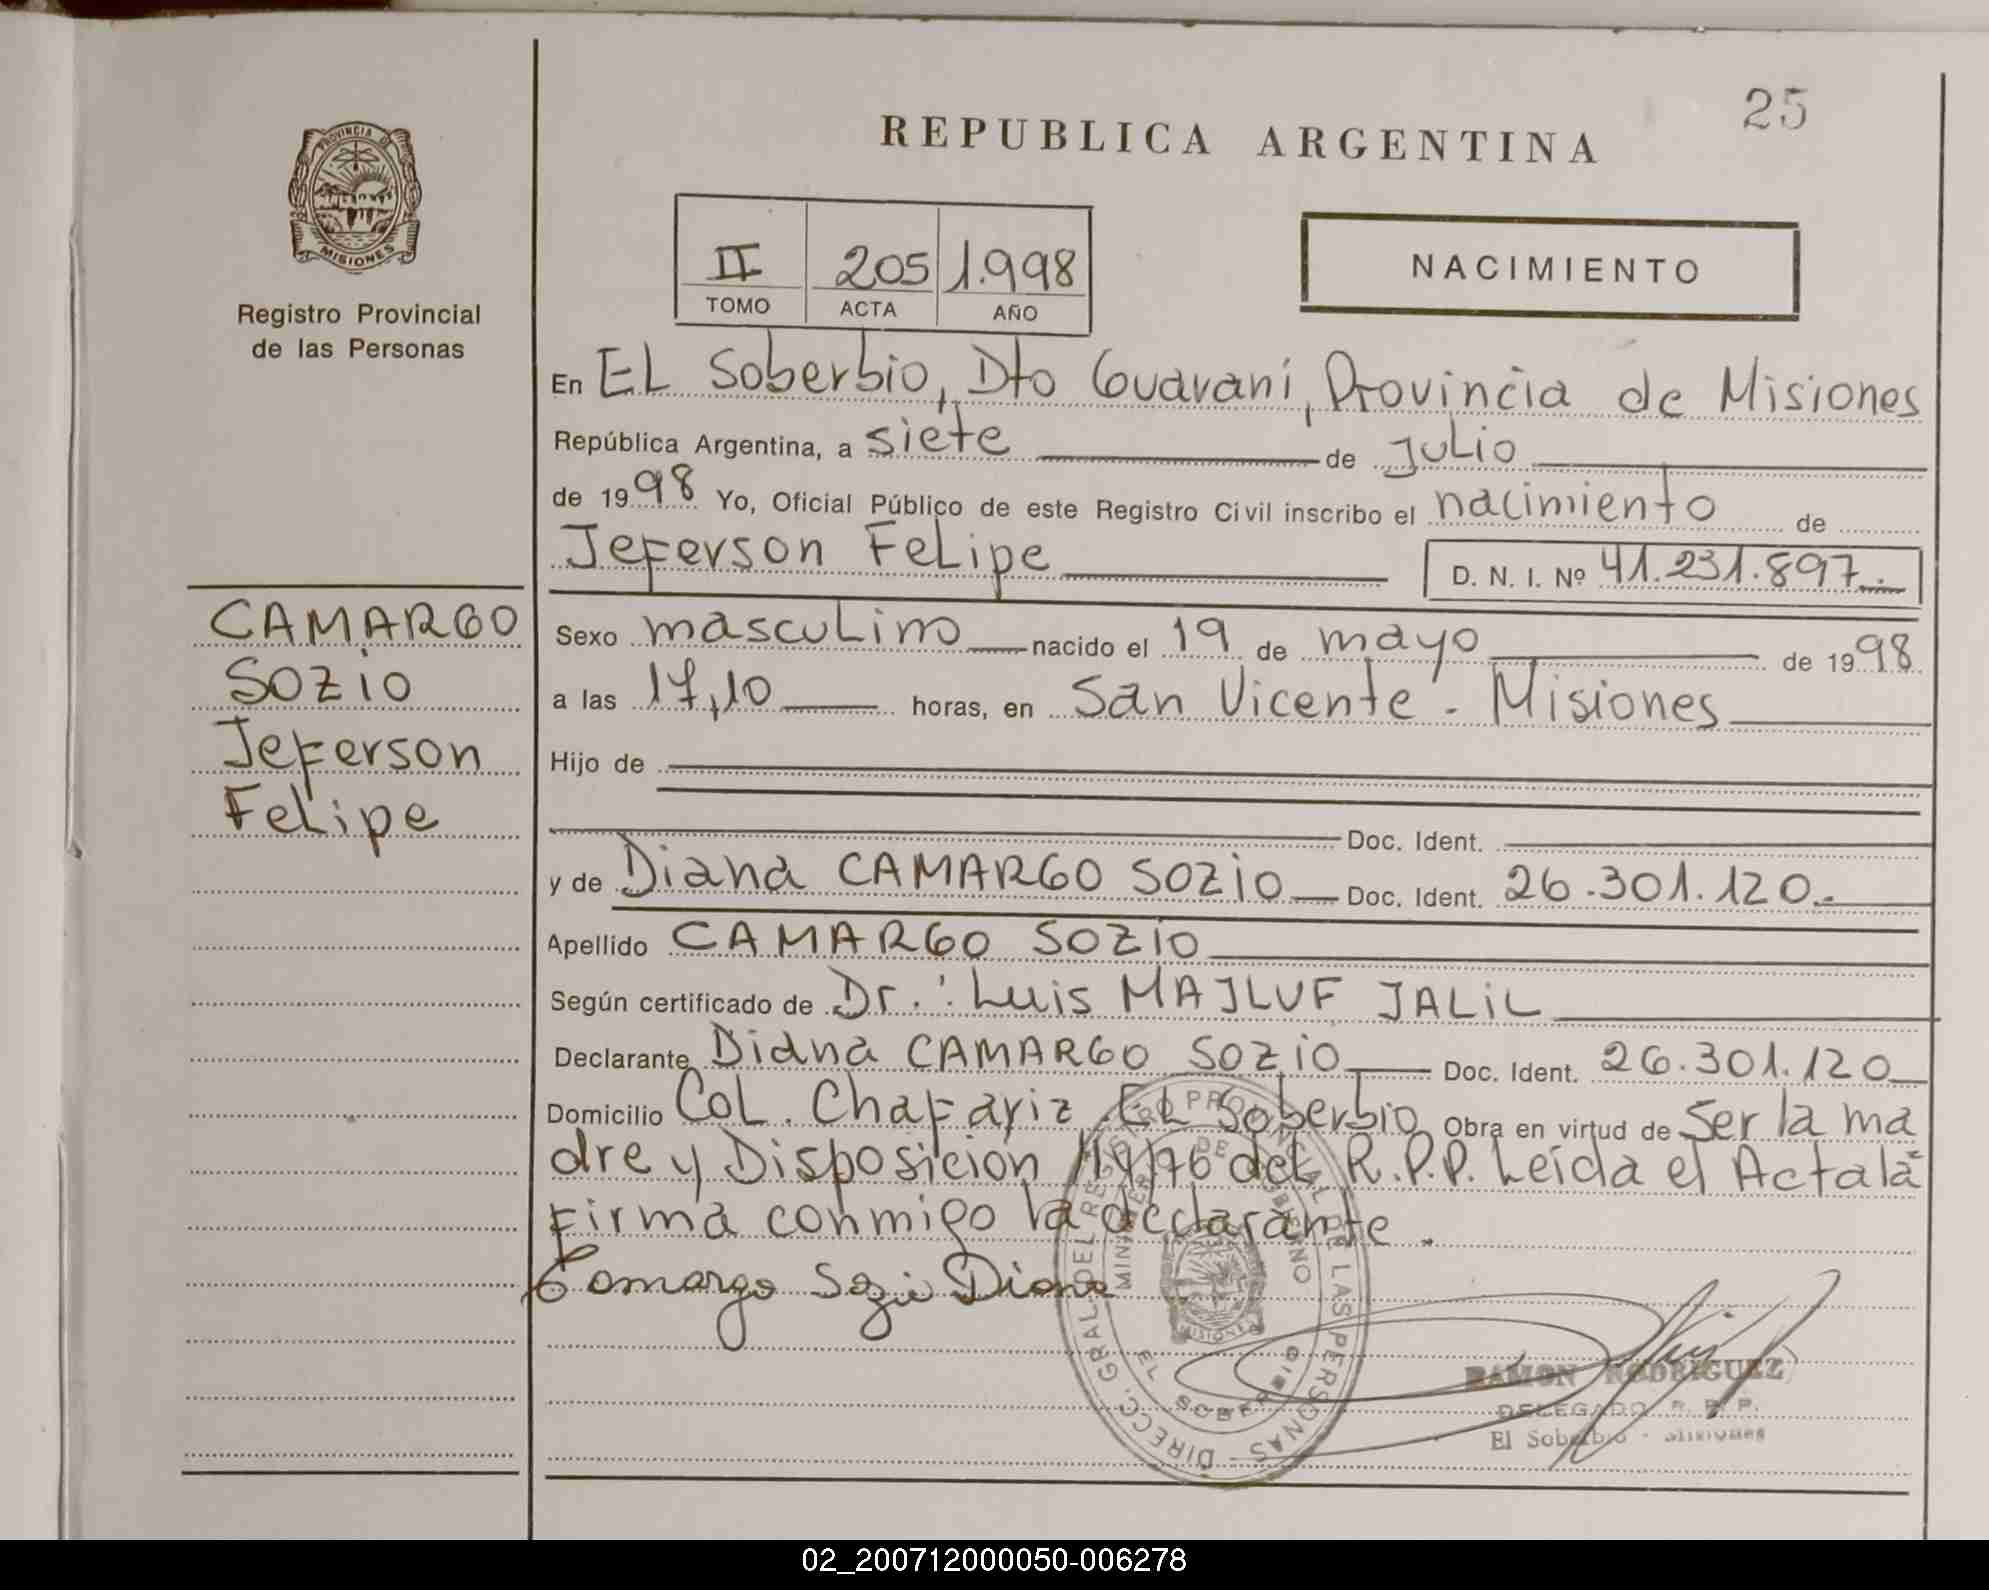 25
REPUBLICA ARGENTINA
PROVINCIA DE
MISIONES
Registro Provincial
de las Personas
II 205 1.998
TOMO ACTA AÑO
NACIMIENTO
En EL Soberbio, Dto Guaraní, Provincia de Misiones
República Argentina, a siete de Julio
de 1998 Yo, Oficial Público de este Registro Civil inscribo el nacimiento de
Jeferson Felipe D. N. I. Nº 41.231.897.-
CAMARGO
Sozio
Jeferson
Felipe
Sexo masculino nacido el 19 de mayo de 1998
a las 17,10 horas, en San Vicente - Misiones
Hijo de
Doc. Ident.
y de Diana CAMARGO SOZIO Doc. Ident. 26.301.120.-
Apellido CAMARGO SOZIO
Según certificado de Dr.: Luis MAJLUF JALIL
Declarante Diana CAMARGO SOZIO Doc. Ident. 26.301.120
Domicilio Col. Chafariz, EL Soberbio Obra en virtud de Ser la ma
dre y Disposicion 119/76 del R.P.P. Leída el Acta la
firma conmigo la declarante.
Camargo Sozio Diana
DIRECC. GRAL. DEL REGISTRO PROVINCIAL DE LAS PERSONAS
MINISTERIO DE GOBIERNO
MISIONES
EL SOBERBIO
RAMON RODRIGUEZ
DELEGADO R. P. P.
El Soberbio - Misiones
02_200712000050-006278